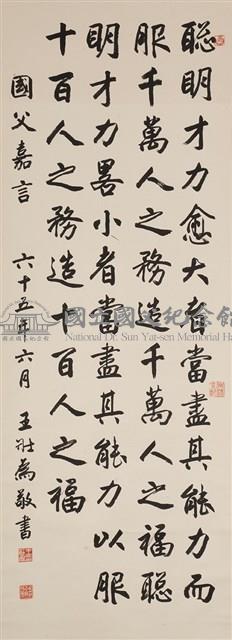 聰明才力愈大者當盡其能力而
服千萬人之務造千萬人之福聰
明才力畧小者當盡其能力以服
十百人之務造十百人之福
國父嘉言 六十五年六月 王壯為敬書
國立國父紀念館
National Dr. Sun Yat-sen Memorial Ha